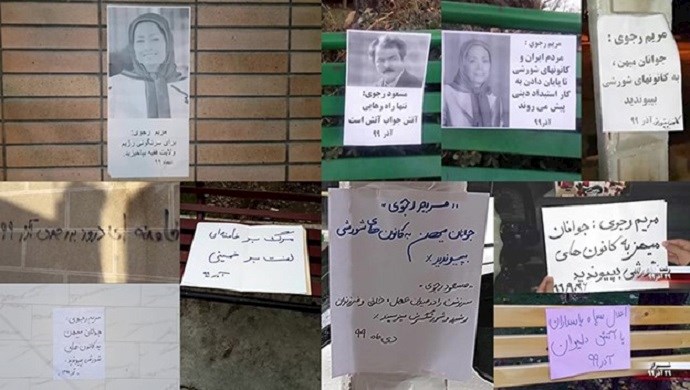 مریم رجوی:
برای سرنگونی رژیم
ولایت فقیه بپاخیزید
۹۹
مسعود رجوی:
تنها راه رهایی
آتش جواب آتش است
آذر ۹۹
مریم رجوی:
مردم ایران و
کانونهای شورشی
تا پایان دادن به
کار استبداد دینی
پیش می روند
آذر ۹۹
مریم رجوی:
جوانان میهن،
به کانونهای شورشی
بپیوندید
آذر ۹۹
خامنه ای درود بر آذر ۹۹
مرگ بر خامنه‌ای
لعنت بر خمینی
آذر ۹۹
"مریم رجوی"
جوانان میهن به کانون های شورشی
بپیوندید
مسعود رجوی
سرنوشت را
دی ماه ۹۹
مریم رجوی: جوانان
میهن به کانون های
شورشی بپیوندید
رشت
۲۶ آذر ۹۹
مریم رجوی:
جوانان میهن
به کانون های
شورشی بپیوندید
پاسداران
با آتش دلیران
آذر ۹۹
شیراز
۲۶ آذر ۹۹